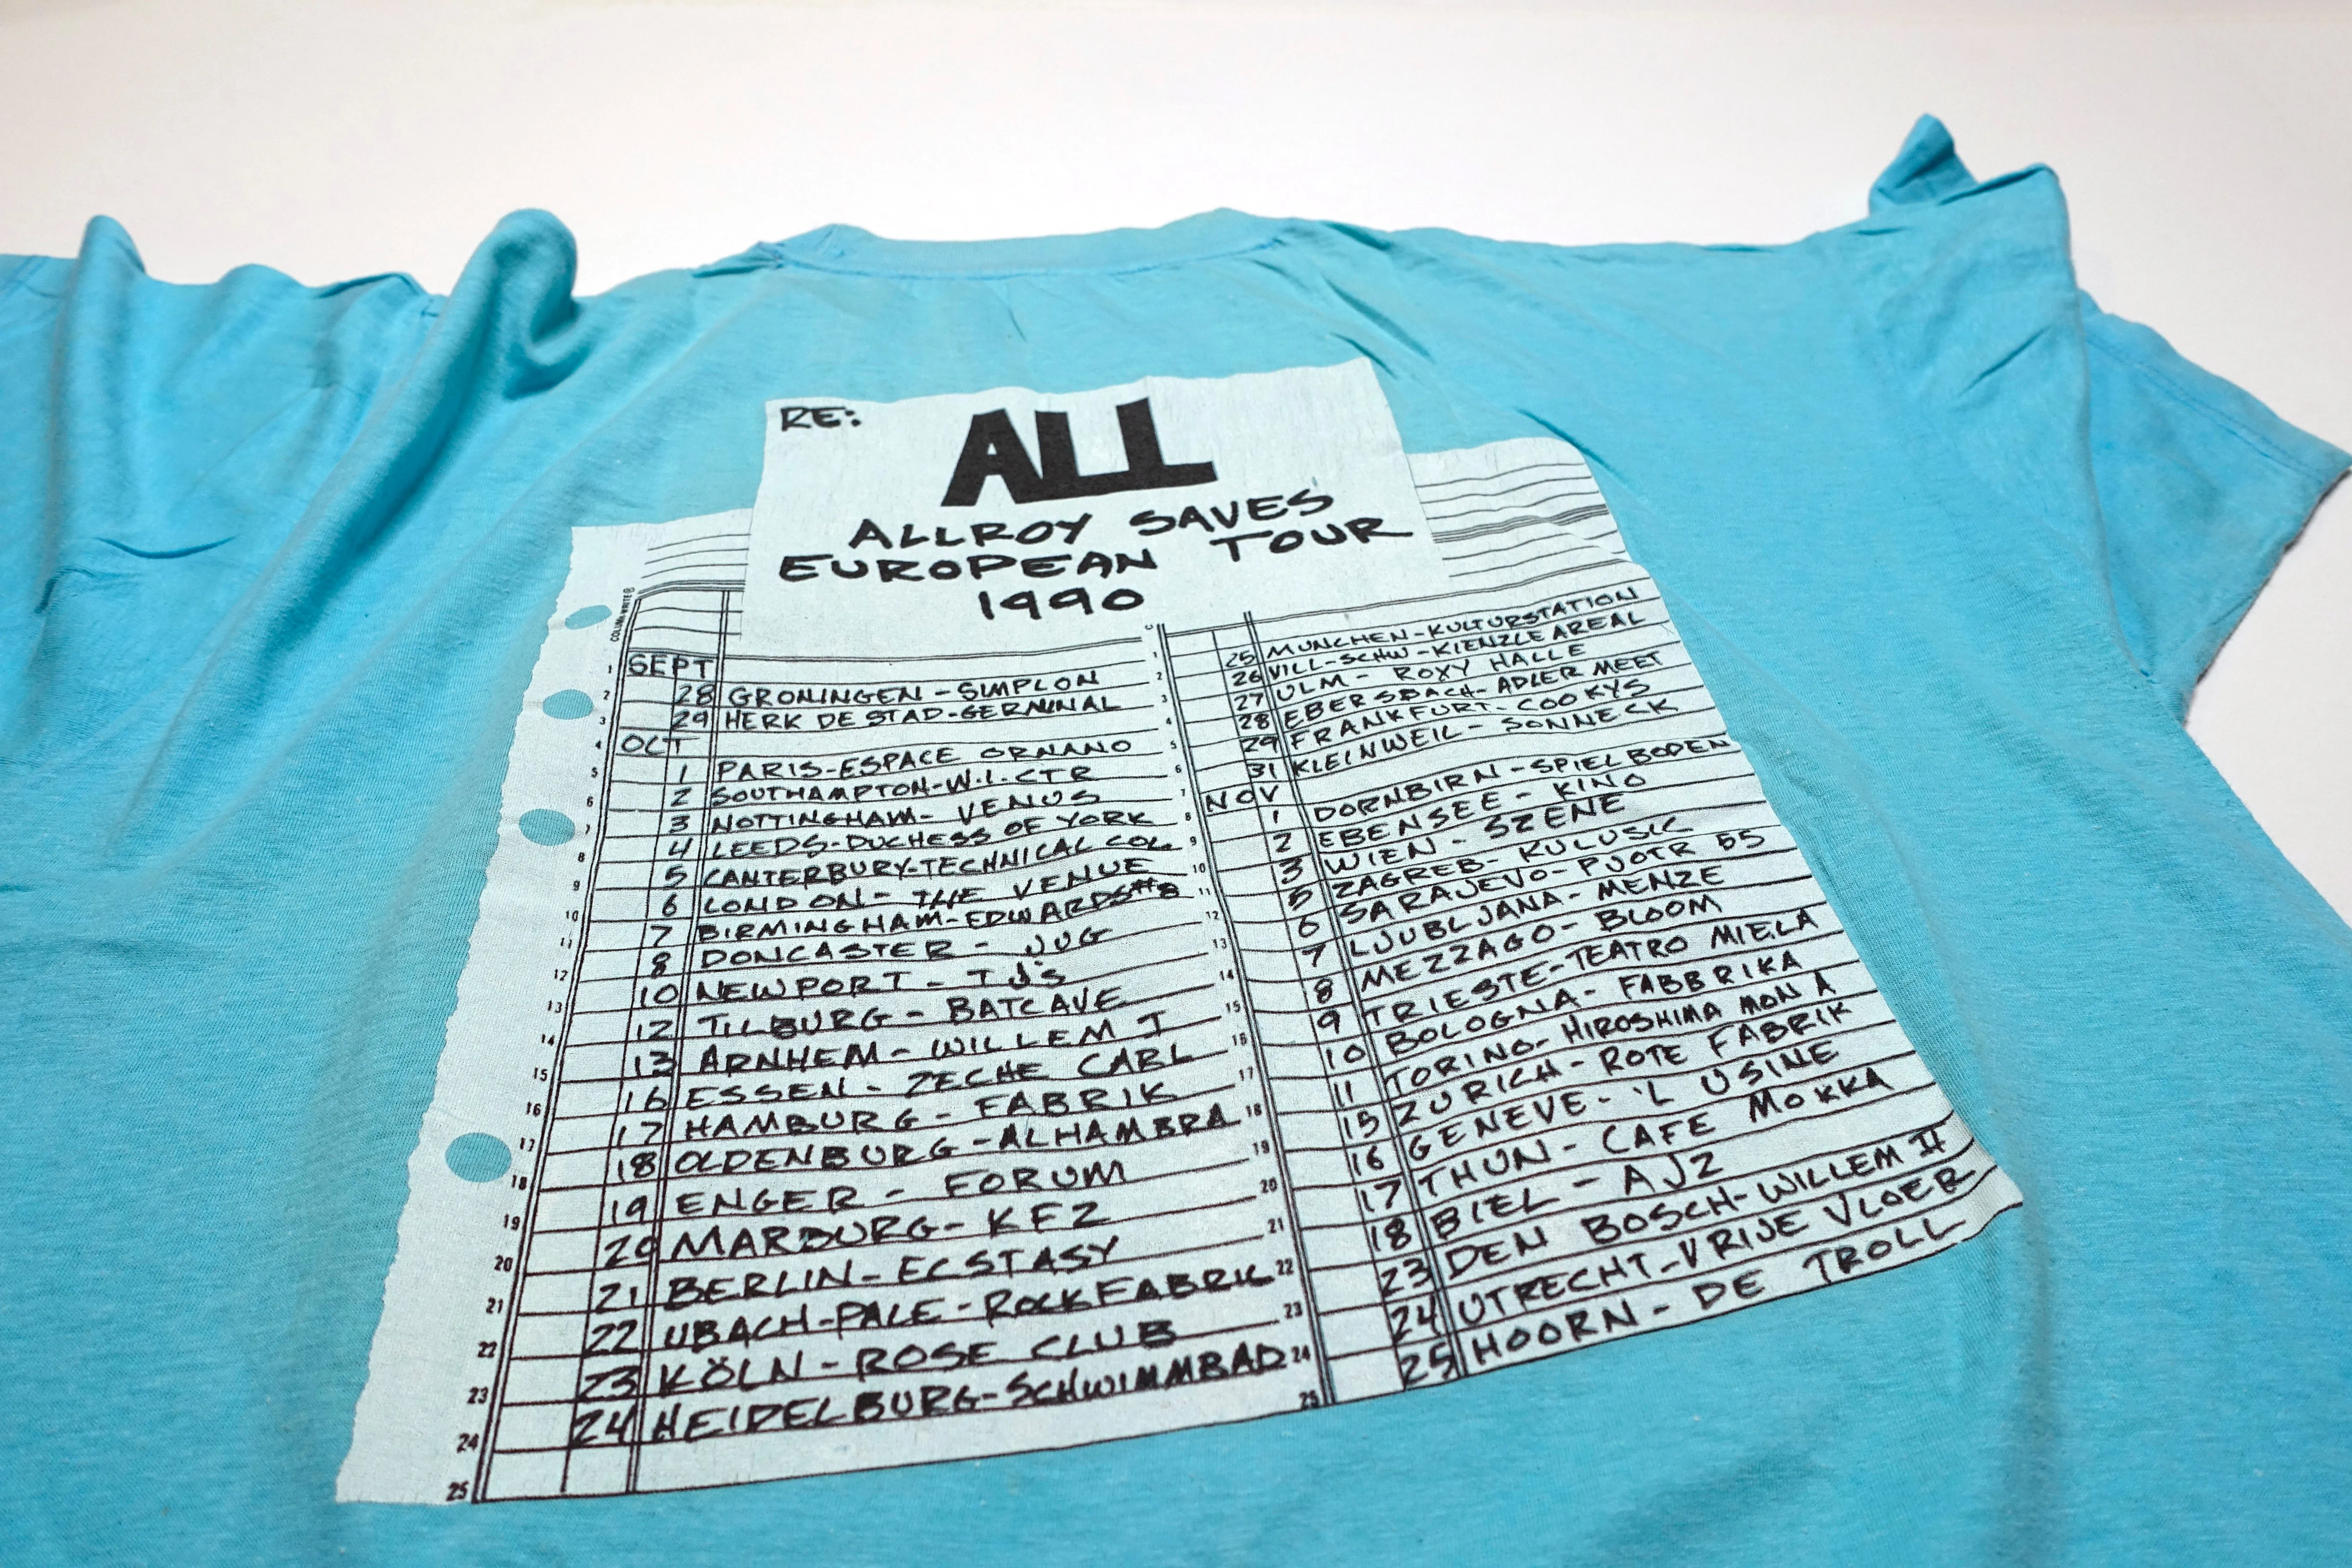 RE:
ALL
ALLROY SAVES
EUROPEAN TOUR
1990
COLUMN WRITE®
1 SEPT
2 28 GRONINGEN - SIMPLON
3 29 HERK DE STAD - GERMINAL
4 OCT
5 1 PARIS - ESPACE ORNANO
6 2 SOUTHAMPTON - W.I. CTR
7 3 NOTTINGHAM - VENUS
8 4 LEEDS - DUCHESS OF YORK
9 5 CANTERBURY - TECHNICAL COL.
10 6 LONDON - THE VENUE
11 7 BIRMINGHAM - EDWARDS #8
12 8 DONCASTER - JUG
13 10 NEWPORT - TJ's
14 12 TILBURG - BATCAVE
15 13 ARNHEM - WILLEM I
16 16 ESSEN - ZECHE CARL
17 17 HAMBURG - FABRIK
18 18 OLDENBURG - ALHAMBRA
19 19 ENGER - FORUM
20 20 MARBURG - KFZ
21 21 BERLIN - ECSTASY
22 22 UBACH-PALE - ROCKFABRIC
23 23 KÖLN - ROSE CLUB
24 24 HEIDELBURG - SCHWIMMBAD
25
1 25 MUNCHEN - KULTURSTATION
2 26 VILL-SCHW - KIENZLE AREAL
3 27 ULM - ROXY HALLE
4 28 EBERSBACH - ADLER MEET
5 29 FRANKFURT - COOKYS
6 31 KLEINWEIL - SONNECK
7 NOV
8 1 DORNBIRN - SPIELBODEN
9 2 EBENSEE - KINO
10 3 WIEN - SZENE
11 5 ZAGREB - KULUSIC
12 6 SARAJEVO - PJOTR 55
13 7 LJUBLJANA - MENZE
14 8 MEZZAGO - BLOOM
15 9 TRIESTE - TEATRO MIELA
16 10 BOLOGNA - FABBRIKA
17 11 TORINO - HIROSHIMA MON A
18 15 ZURICH - ROTE FABRIK
19 16 GENEVE - 'L USINE
20 17 THUN - CAFE MOKKA
21 18 BIEL - AJZ
22 23 DEN BOSCH - WILLEM II
23 24 UTRECHT - VRIJE VLOER
24 25 HOORN - DE TROLL
25